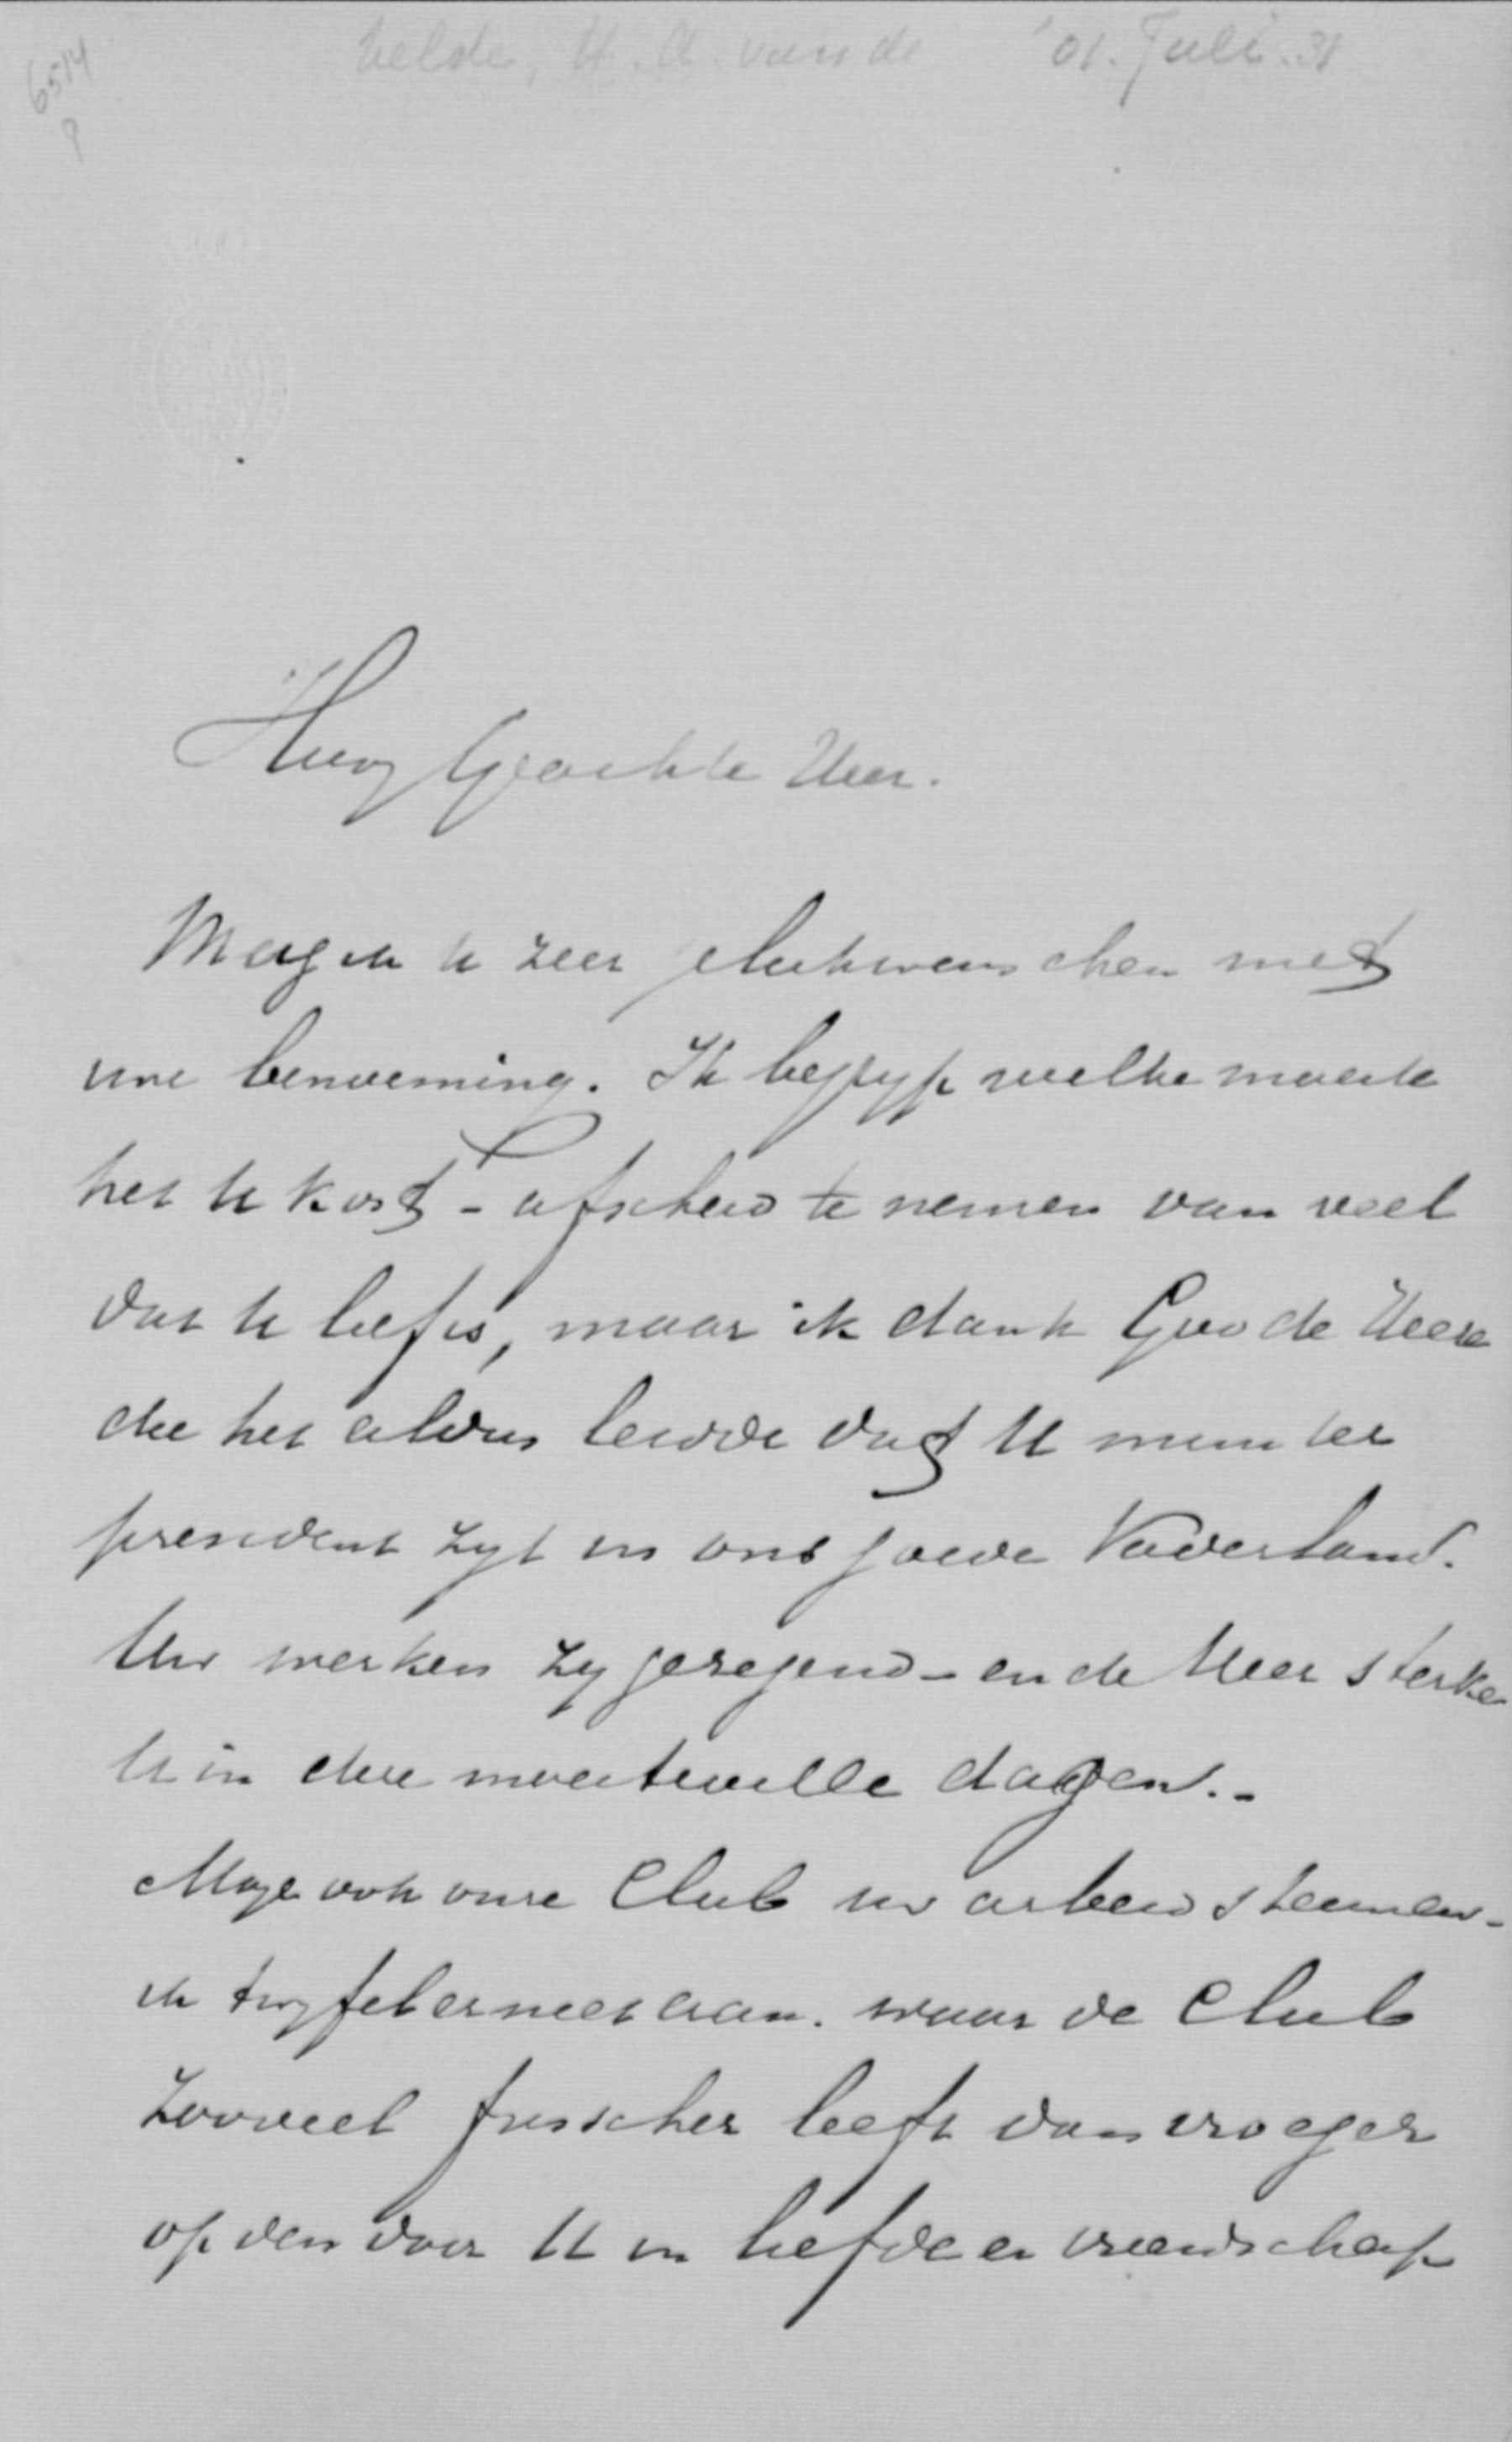 6514
Velde, H. A. van de '01. Juli. 31
Hoog Geachte Heer.
Mag ik U zeer gelukwenschen met
uwe benoeming. Ik begryp welke moeite
het U kost - afscheid te nemen van veel
dat U lief is, maar ik dank God de Heere
die het aldus leidde dat U minister
president zyt in ons goede Vaderland.
Uw werken zy gezegend - en de Heer sterke
U in deze moeitevolle dagen. -
Moge ook onze Club uw arbeid steunen -
ik twyfel er niet aan. waar de Club
zooveel frisscher leeft dan vroeger
op den door U in liefde en vriendschap